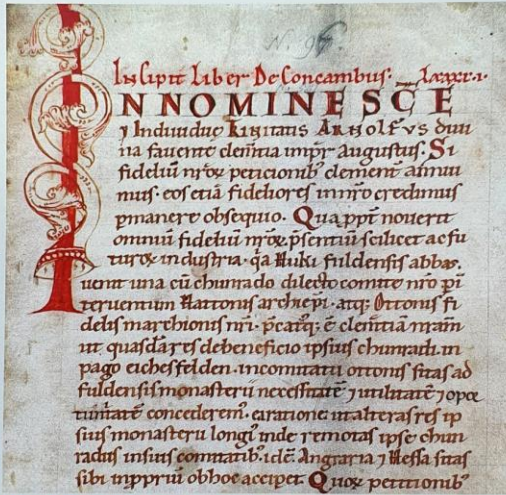 N. 96.
Incipit Liber De Concambiis. lxxxi.
IN NOMINE SC̄E
⁊ Individuę Trinitatis ARNOLFVS divi
na favente clem̄tia imp̄r augustus. Si
fideliū nr̄oꝝ peticionib; clement̄ annui
mus. eos etiā fideliores in nr̄o credimus
ꝑmanere obsequio. Quapp̄t noverit
omniū fideliū nr̄oꝝ p̄sentiū scilicet ac fu
turoꝝ industria. q̄a Huki fuldensis abbas
iuenit una cū chunrado dilecto comite nr̄o ꝑ ī
terventum Hattonis archiep̄i. atq; Ottonis fi
delis marchionis nr̄i. p̄catq; ē clem̄tiā nr̄am
ut quasdā res de beneficio ipsius chunradi. in
pago eichesfelden. in comitatu ottonis sitas ad
fuldensis monasterii necessitatē ⁊ utilitatē ⁊ opor
tunitatē concederem̄. ea ratione ut alteras res ip
sius monasterii longi; inde remotas ipse chun
radus in suis comitatib; id ē Angraria ⁊ Hessa sitas
sibi in ꝓpriū ob hoc acciꝑet. Quoꝝ petitionib;